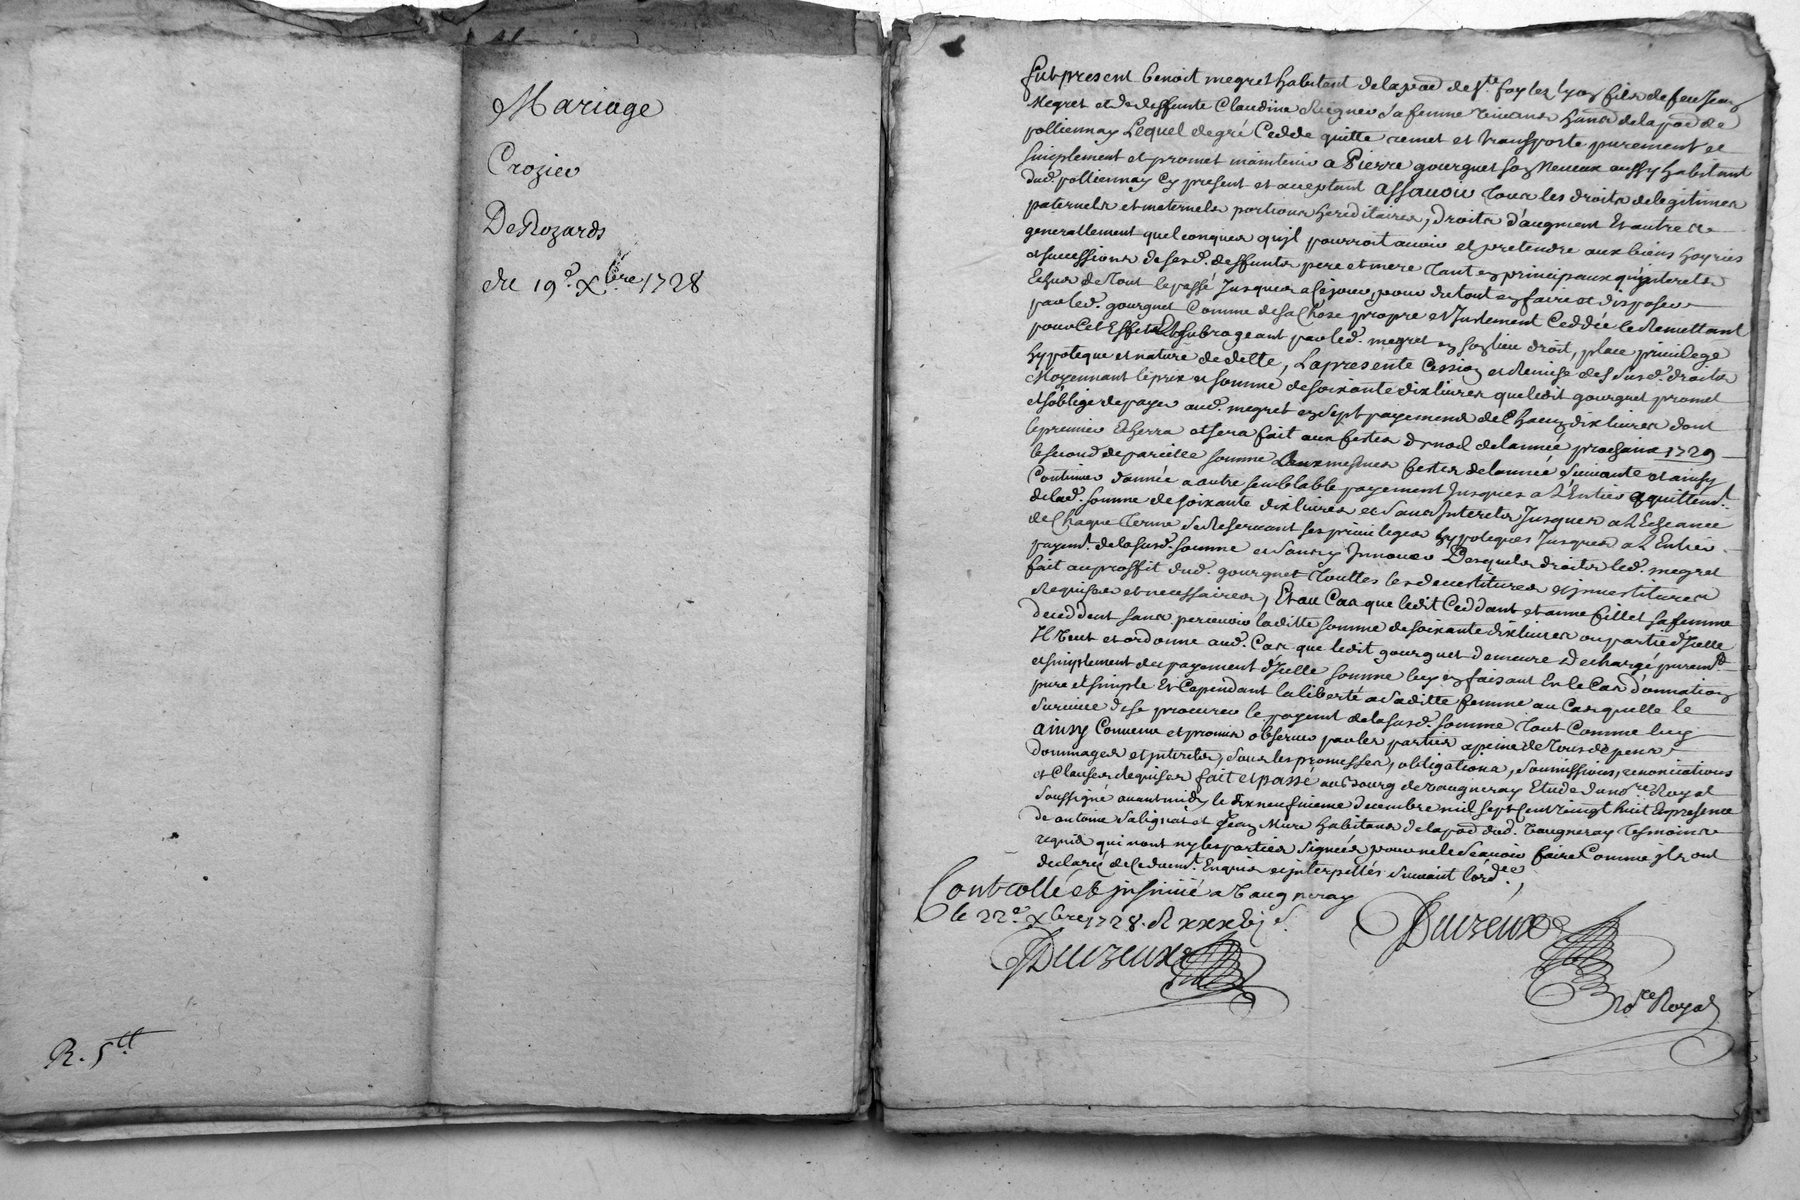 Mariage
Crozier
De Rozards
du 19e. Xbre 1728
R. 5tt
fut present benoit megret habitant de la pad de Ste. foy lez lyon fils de feu Jean
Megret et de deffunte Claudine sa femme vivans hans de la pad de
pollionnay Lequel de gré Cedde quitte remet et transporte purement et
simplement et promet maintenir a Pierre gourguet son Neveux aussy habitant
dud. pollionnay Cy present et acceptant assavoir tous les droits de legitimes
paternels et maternels portions hereditaires, droits d'augment et autres
generallement quelconques qu'jl pourroit avoir et pretendre aux biens hoyries
et successions de sesd. deffunts pere et mere tant en principaux qu'jnterets
Echus de tout le passé Jusques a Ce jour, pour du tout en faire et disposer
par led. gourguet Comme de sa Chose propre et Justement Ceddée le Remettant
pour Cet Effet et subrogeant par led. megret en son lieu droit, place privilege
hypoteque et nature de dette, La presente Cession et Remise desd. susd. droits
Moyennant le prix et somme de soixante dix livres que ledit gourguet promet
et s'oblige de payer aud. megret en sept payemens de Chacun dix livres dont
le premier Echerra et sera fait aux festes de noel de l'année prochaine 1729
le second de pareille somme aux mesmes festes de l'année suivante et ainsy
Continuer d'année a autre semblable payement Jusques a L'Entier acquittemt.
de lad. somme de soixante dix livres et sans Interets Jusques a L'Echeance
de Chaque terme se Reservant ses privileges hypoteques Jusques a L'Entier
payemt. de la susd. somme et sans y Innover Desquels droits led. megret
fait au proffit dud. gourguet touttes les devestitures et jnvestitures
Requises et necessaires, Et au Cas que ledit Ceddant et anne fillet sa femme
deceddent sans percevoir laditte somme de soixante dix livres ou partie d'Jcelle
Il veut et ordonne aud. Cas que ledit gourguet demeure dechargé puremt.
et simplement du payement d'Jcelle somme luy en faisant En le Cas donnation
pure et simple Et Cependant la liberté a saditte femme au Cas quelle le
survive de se procurer le payemt de la susd. somme tout Comme luy
ainsy Convenu et promis observer par les parties a peine de tous depens
dommages et jnterets, sous les promesses, obligations, soumissions, renonciations
et Clauses Requises fait et passé au bourg de vaugneray Etude du nore. Royal
soussigné avant midy le dix neufvieme decembre mil sept Cent vingt huit En presence
de antoine salignat et Jean Mure habitans de la pad dud. vaugneray tesmoins
requis qui n'ont ny les parties signées pour ne le sçavoir faire Comme jls ont
declaré de Ce duemt. Enquis et jnterpellés suivant l'ordce.
Controllé et jnsinüé a vaugneray
le 22e. Xbre 1728. R xxxvj s.
Duizeux
Duizeux
nore Royal